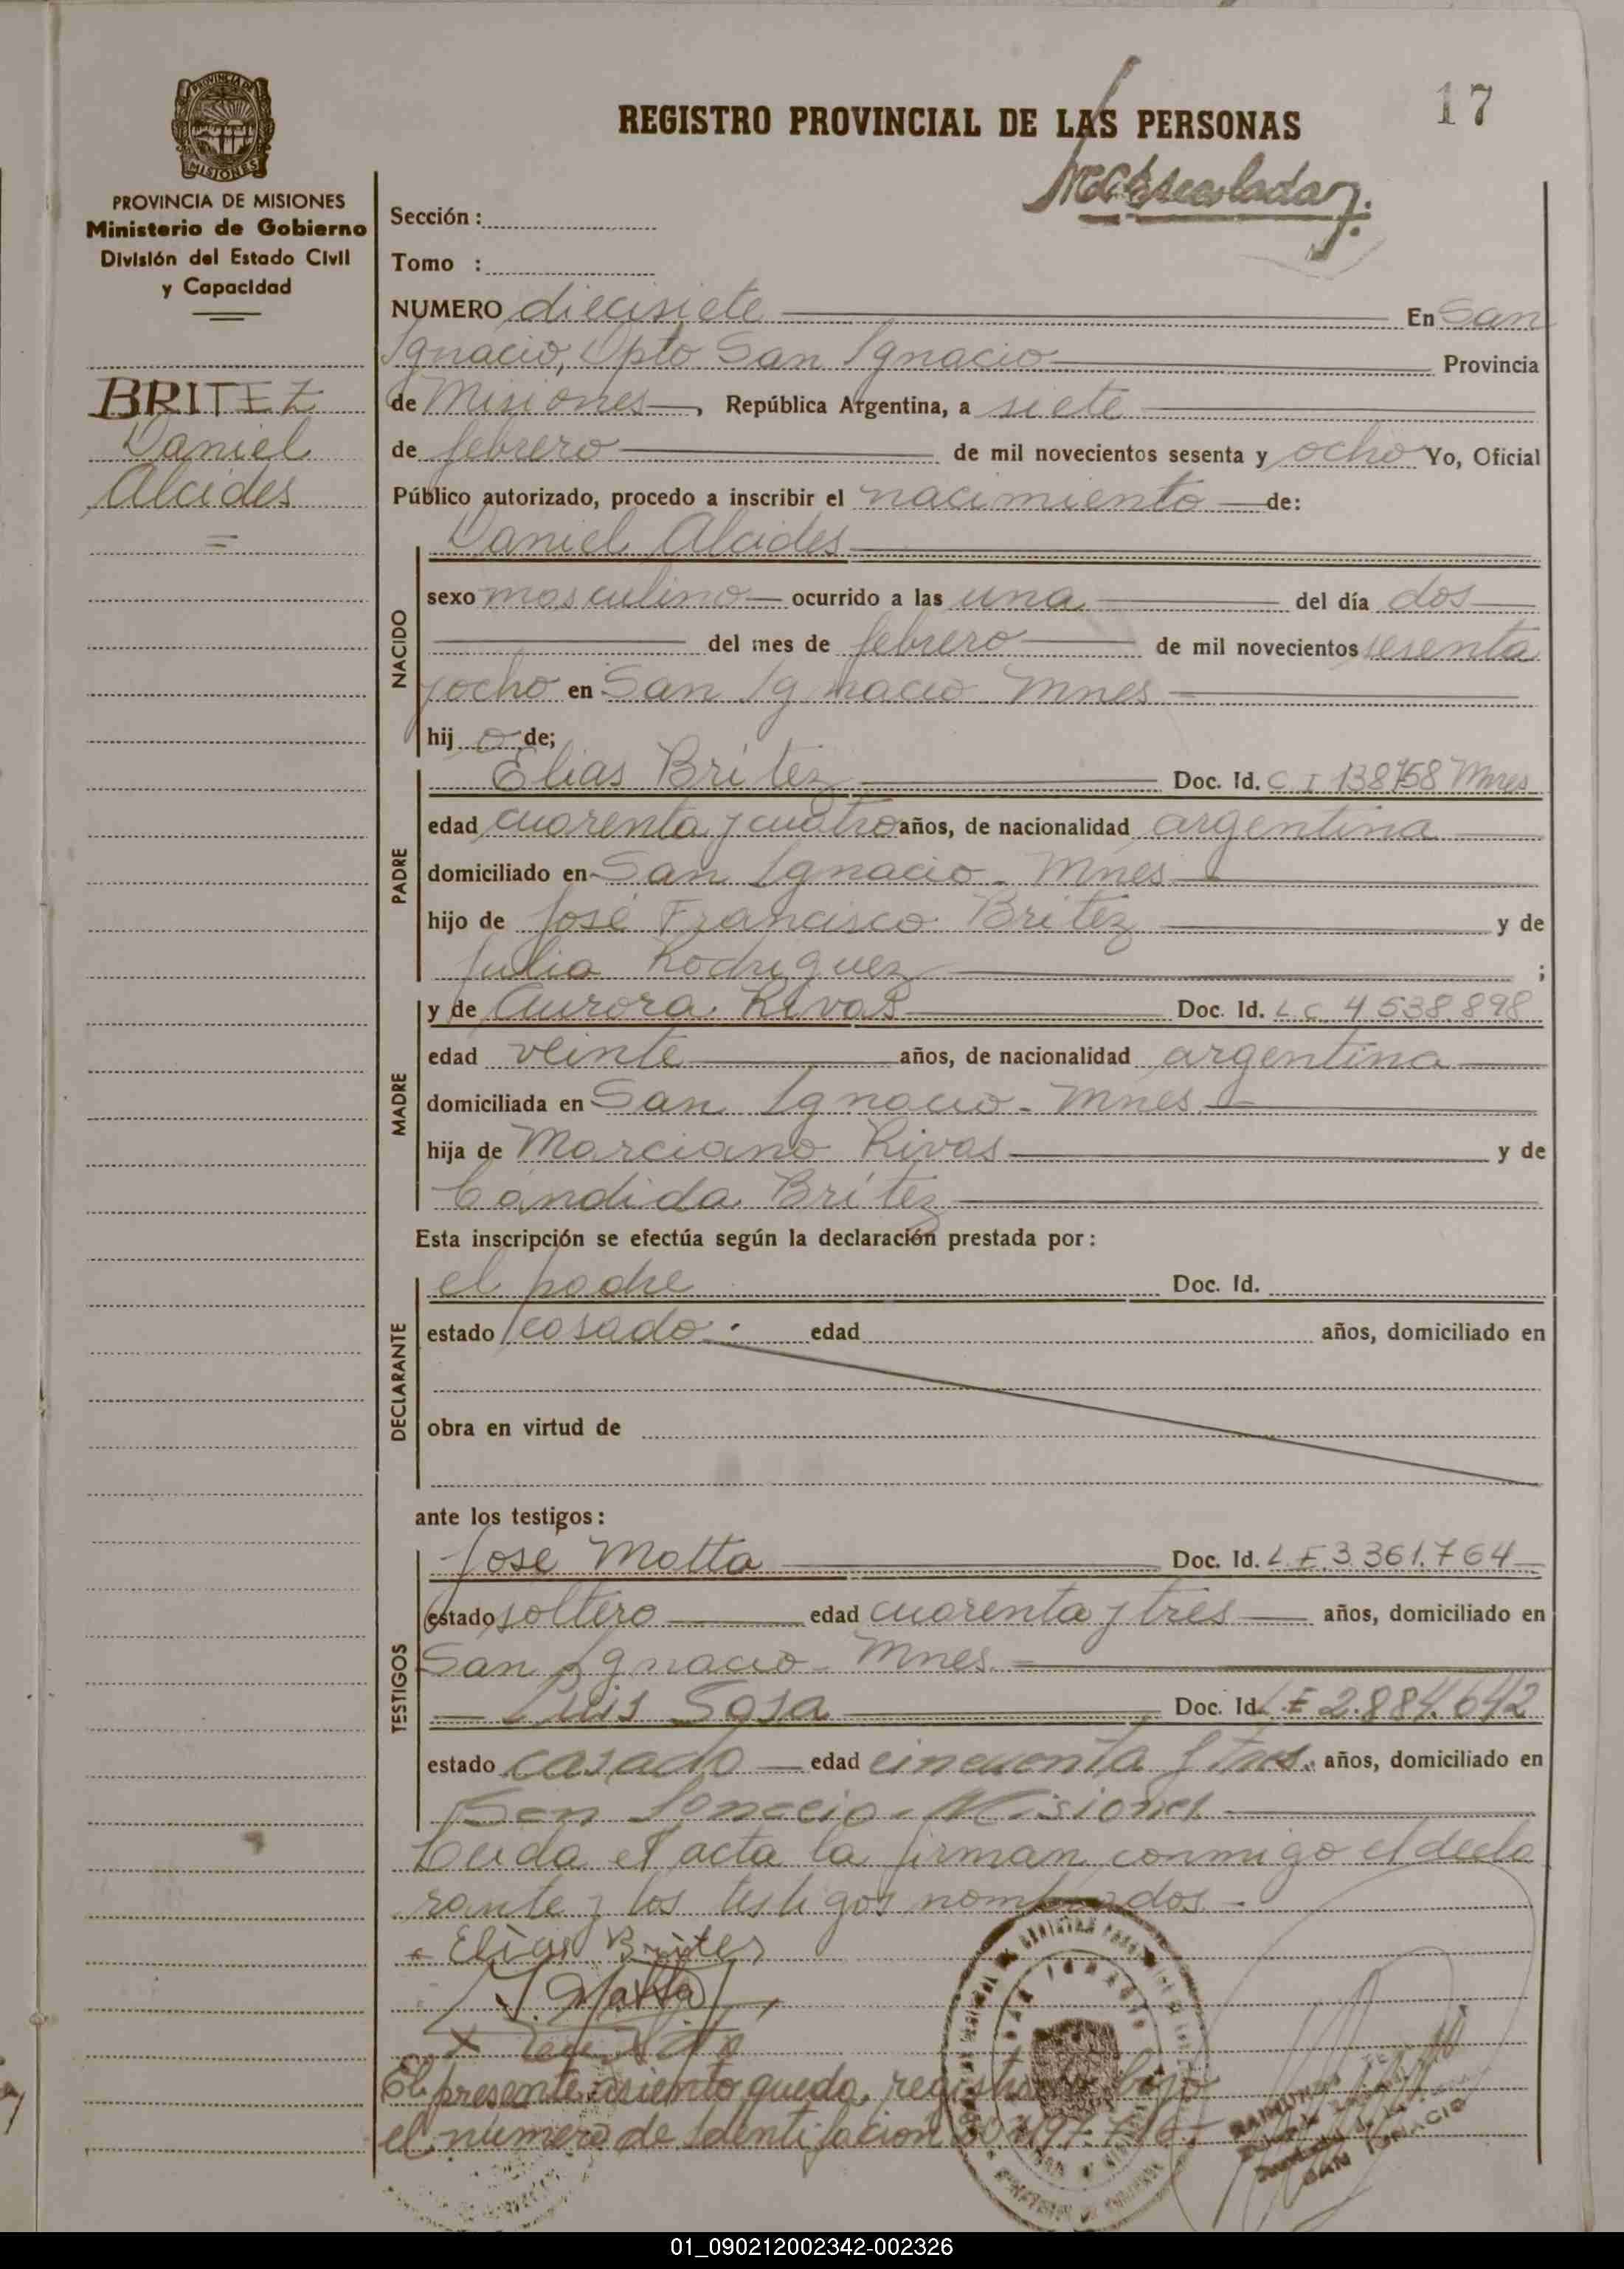 17
REGISTRO PROVINCIAL DE LAS PERSONAS
PROVINCIA DE MISIONES
Ministerio de Gobierno
División del Estado Civil
y Capacidad
BRITEZ
Daniel
Alcides
Sección :
Tomo :
NUMERO diecisiete En San
Ignacio, Dpto San Ignacio Provincia
de Misiones, República Argentina, a siete
de febrero de mil novecientos sesenta y ocho Yo, Oficial
Público autorizado, procedo a inscribir el nacimiento de:
NACIDO
Daniel Alcides
sexo masculino ocurrido a las una del día dos
del mes de febrero de mil novecientos sesenta
y ocho en San Ignacio Mnes
hij o de;
PADRE
Elias Britez Doc. Id. C I 138758 Mnes
edad cuarenta y cuatro años, de nacionalidad argentina
domiciliado en San Ignacio - Mnes
hijo de José Francisco Britez y de
Julia Rodriguez ;
MADRE
y de Aurora Rivas Doc. Id. L C. 4.538.898
edad veinte años, de nacionalidad argentina
domiciliada en San Ignacio - Mnes.
hija de Marciano Rivas y de
Cándida Britez
Esta inscripción se efectúa según la declaración prestada por :
DECLARANTE
el padre Doc. Id.
estado casado. edad años, domiciliado en
obra en virtud de
ante los testigos :
TESTIGOS
Jose Motta Doc. Id. L.E. 3.361.764
estado soltero edad cuarenta y tres años, domiciliado en
San Ignacio - Mnes.
Luis Sosa Doc. Id. L E 2.884.642
estado casado edad cincuenta y tres. años, domiciliado en
San Ignacio - Misiones
Leida el acta la firman conmigo el decla
rante y los testigos nombrados.-
Elias Britez
J. Motta
El presente asiento queda registrado bajo
el número de Identificación
SAN IGNACIO
01_090212002342-002326